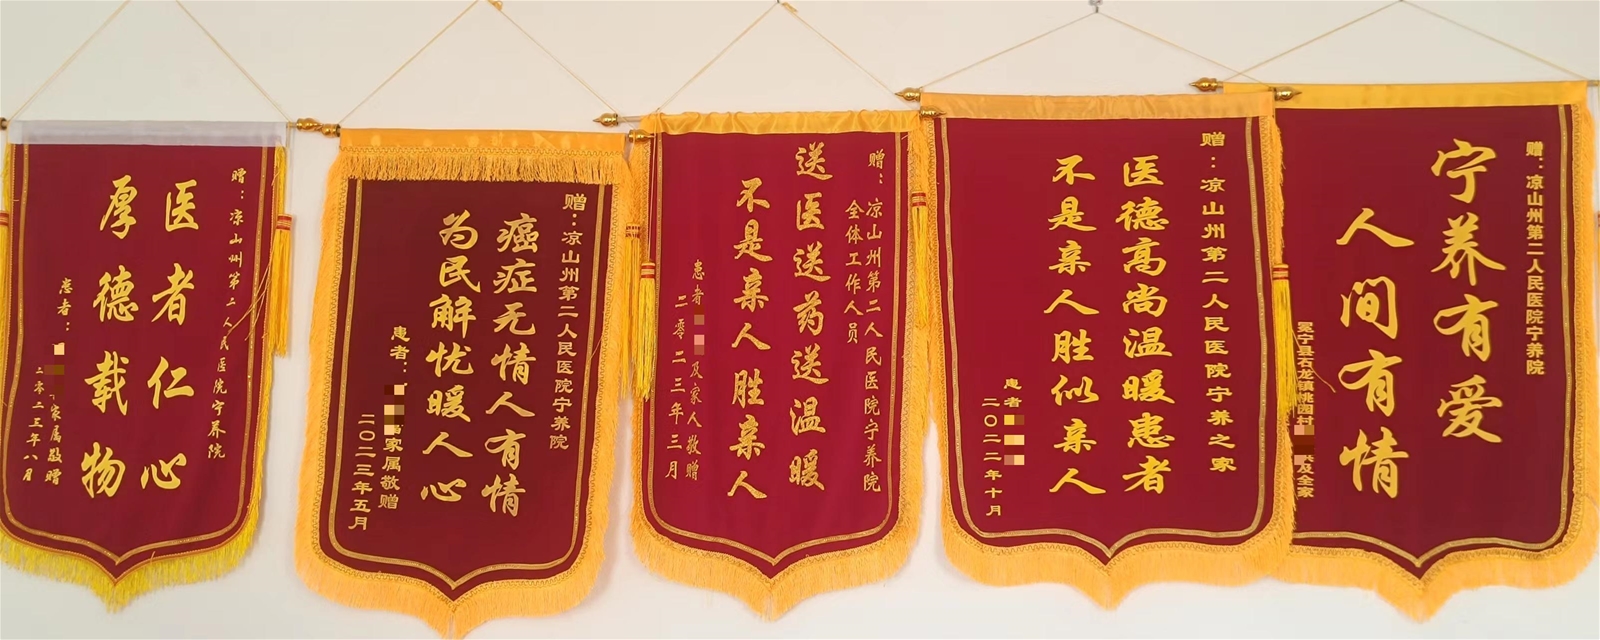 赠：凉山州第二人民医院宁养院
医者仁心
厚德载物
患者：家属敬赠
二零二三年八月
赠：凉山州第二人民医院宁养院
癌症无情人有情
为民解忧暖人心
患者：家属敬赠
二〇二三年五月
赠：凉山州第二人民医院宁养院
全体工作人员
送医送药送温暖
不是亲人胜亲人
患者 及家人敬赠
二零二三年三月
赠：凉山州第二人民医院宁养之家
医德高尚温暖患者
不是亲人胜似亲人
患者
二〇二二年十月
赠：凉山州第二人民医院宁养院
宁养有爱
人间有情
冕宁县石龙镇桃园村 及全家